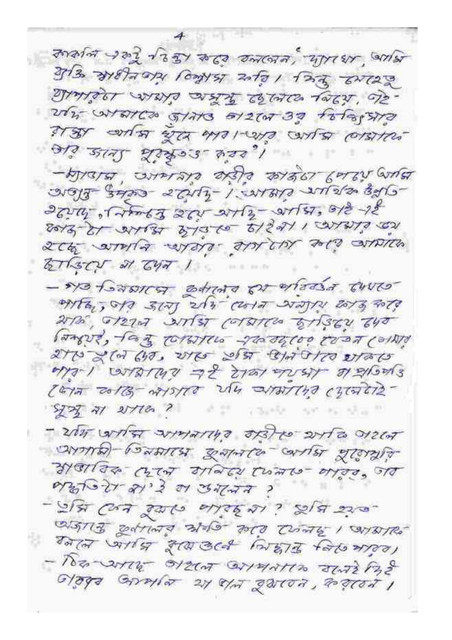 4
কাকলি একটু চিন্তা করে বললেন, "দ্যাখো, আমি
ব্যক্তি স্বাধীনতায় বিশ্বাস করি। কিন্তু যেহেতু
ব্যাপারটা আমার অসুস্থ ছেলেকে নিয়ে, তাই
যদি আমাকে জানাও তাহলে ওর চিকিৎসার
রাস্তা আমি খুঁজে পাব। আর আমি তোমাকে
তার জন্যে পুরস্কৃতও করব"।
– ম্যাডাম, আপনার বাড়ীর কাজটা পেয়ে আমি
অত্যন্ত উপকৃত হয়েছি। আমার আর্থিক উন্নতি
হয়েছে, নিশ্চিন্ত হয়ে আছি আমি, তাই এই
কাজটা আমি ছাড়তে চাইনা। আমার ভয়
হচ্ছে আপনি আবার রাগটাগ করে আমাকে
ছাড়িয়ে না দেন।
– গত তিনমাসে কুনালের যে পরিবর্তন দেখতে
পাচ্ছি, তার জন্যে যদি কোন অন্যায় কাজ করে
থাক, তাহলে আমি তোমাকে ছাড়িয়ে দেব
নিশ্চয়ই, কিন্তু তোমাকে একবছরের বেতন তোমার
হাতে তুলে দেব, যাতে তুমি ভালভাবে থাকতে
পার। আমাদের এই টাকা পয়সা বা প্রতিপত্তি
কোন কাজে লাগবে যদি আমাদের ছেলেটাই
সুস্থ না থাকে?
– যদি আমি আপনাদের বাড়ীতে থাকি তাহলে
আগামী তিনমাসে কুনালকে আমি পুরোপুরি
স্বাভাবিক ছেলে বানিয়ে ফেলতে পারব, তার
পদ্ধতিটা না'ই বা শুনলেন?
– তুমি কেন বুঝতে পারছ না? তুমি হয়ত
অজান্তে কুনালের ক্ষতি করে ফেলছ। আমাকে
বললে আমি বুঝেশুনে সিদ্ধান্ত নিতে পারব।
– ঠিক আছে তাহলে আপনাকে বলেই দিই
তারপর আপনি যা ভাল বুঝবেন, করবেন।